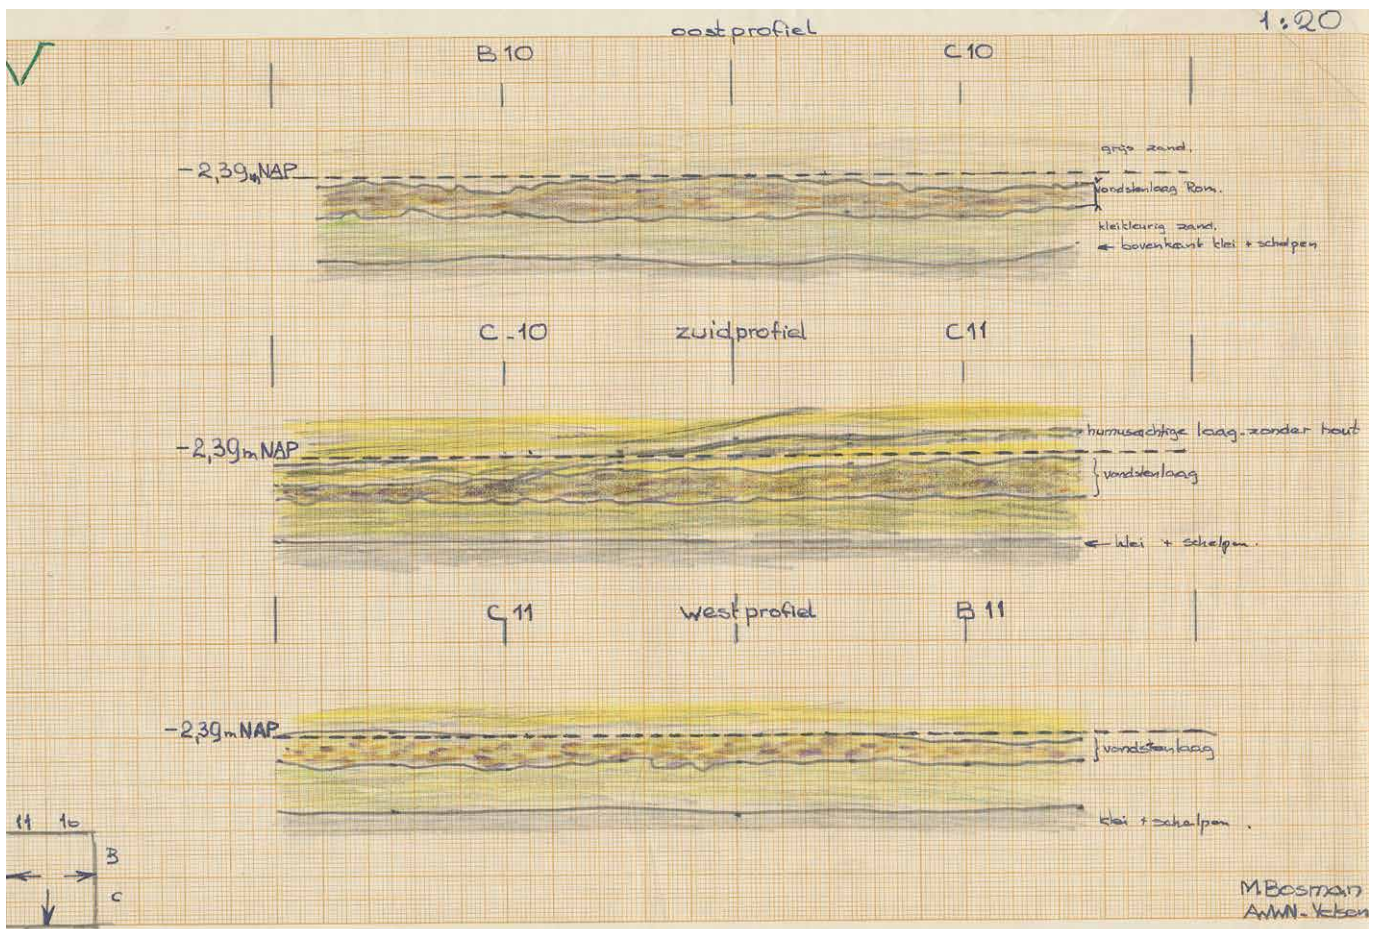 oostprofiel
1:20
B10
C10
-2,39m NAP
grijs zand.
vondstenlaag Rom.
kleikleurig zand.
bovenkant klei + schelpen
C-10
zuidprofiel
C11
-2,39m NAP
humusachtige laag-zonder hout
vondstenlaag
klei + schelpen.
C11
westprofiel
B11
-2,39m NAP
vondstenlaag
klei + schelpen.
11 10
B
C
M.Bosman
AWWN-Velsen